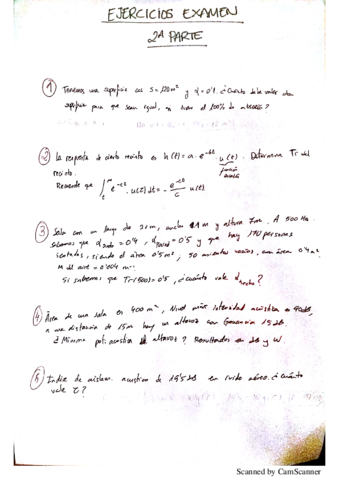 EJERCICIOS EXAMEN
2ª PARTE
1) Tenemos una superficie con S=120 m² y α=0'1. ¿Cuánto debe valer otra
superficie para que sean igual, si tiene el 100% de absorción?
2) La respuesta de cierto recinto es h(t) = a · e^-bt · u(t). Determina Tr del
función
recinto.
Recuerde que ∫ e^-ct · u(t) dt = - e^-ct / c · u(t).
3) Sala con un largo de 21m, ancho 11m y altura 7m. A 500 Hz
sabemos que α suelo = 0'4, α pared = 0'5 y que hay 170 personas
sentadas, siendo el área 0'5 m², 50 asientos vacíos, con área 0'4 m²
m del aire = 0'004 m⁻¹.
Si sabemos que Tr(500)=0'5, ¿cuánto vale α techo?
4) Área de una sala es 400 m², Nivel intensidad acústica es 90dB,
a una distancia de 15m hay un altavoz con Ganancia 15 dB.
¿Mínima pot. acústica altavoz? Resultados en dB y W.
5) Índice de aislam. acústico de 19'5 dB en ruido aéreo. ¿Cuánto
vale τ?
Scanned by CamScanner